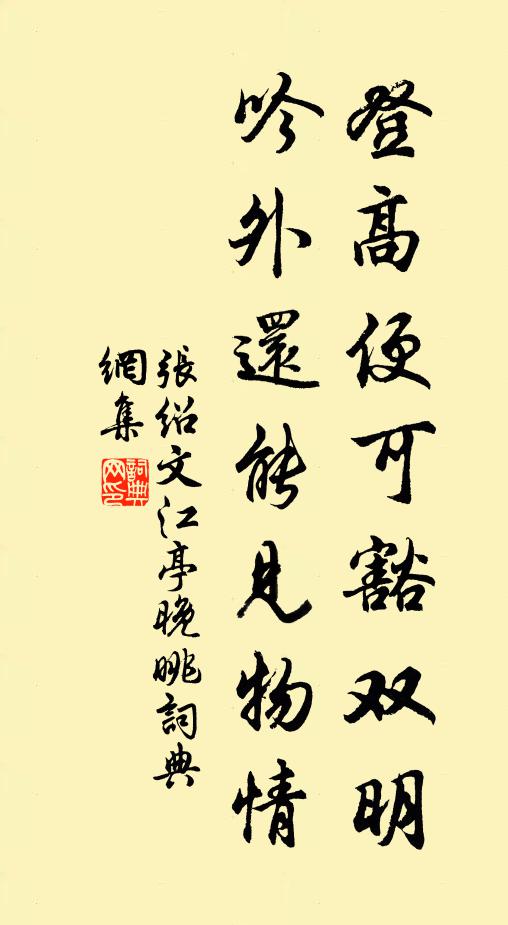 登高便可豁双明
吟外還能見物情
張紹文江亭晚眺詞典
網集
詞典
网印